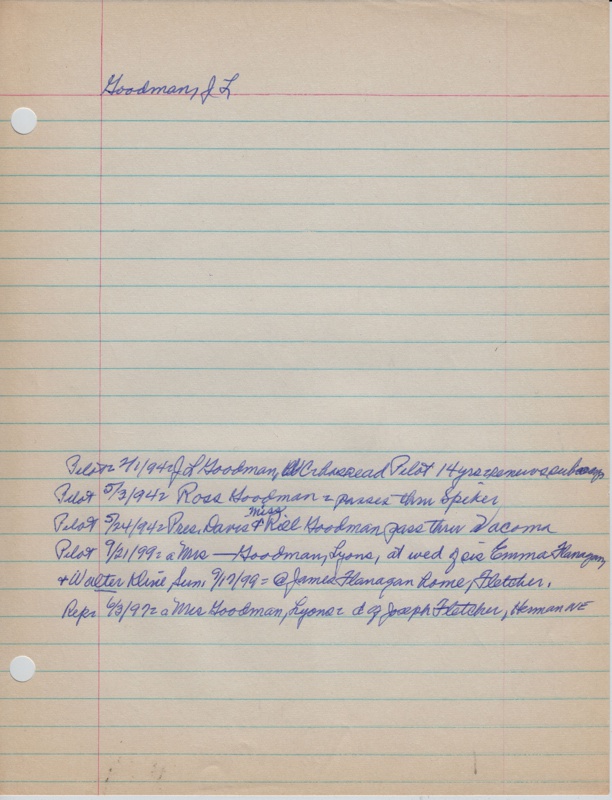 Goodman, J L
Pilot= 2/1/94= J L Goodman, has read Pilot 14 yrs=
Pilot 5/3/94= Ross Goodman = passes thru Spiker
Pilot 5/24/94= Pres. Davis & Miss Goodman pass thru Tacoma
Pilot 9/21/99= a "Mrs — Goodman, Lyons, at wed of sis Emma Flanagan,
& Walter Kline Sun. 9/17/99= @ James Flanagan home, Fletcher.
Rep= 6/3/97= a "Mrs Goodman, Lyons= d of Joseph Fletcher, Herman NE